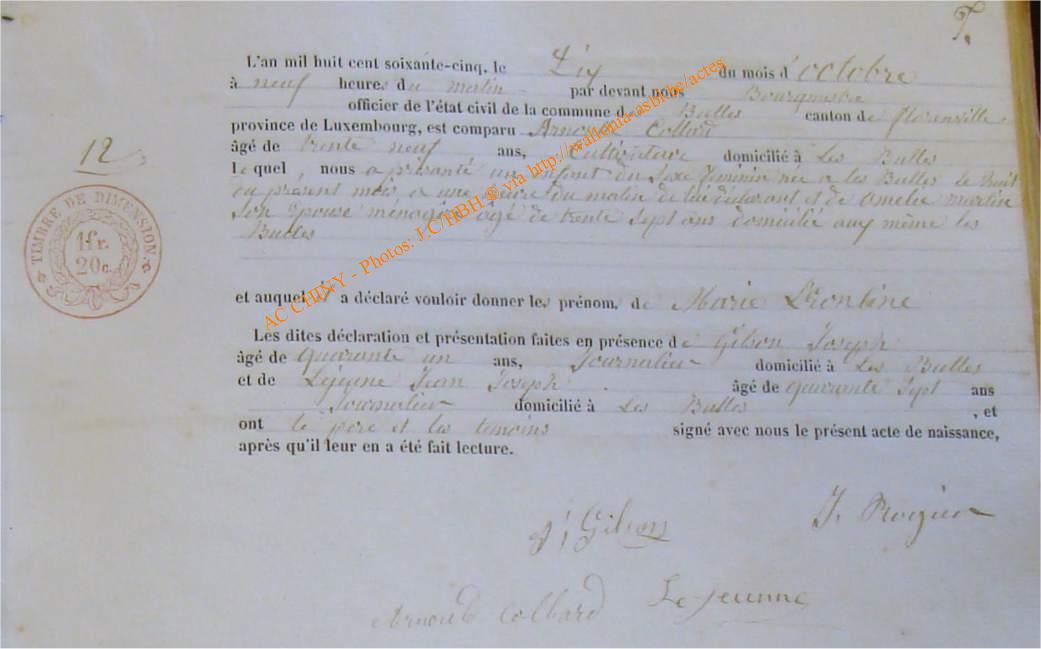 L'an mil huit cent soixante-cinq, le Dix du mois d'octobre
à neuf heures du matin par devant nous Bourgmestre
officier de l'état civil de la commune de Bulles canton de florenville
province de Luxembourg, est comparu Arnould Collard
âgé de trente neuf ans, Cultivateur domicilié à Les Bulles
lequel, nous a présenté un enfant du sexe féminin née a les Bulles le huit
du présent mois a une heure du matin de lui déclarant et de amelie martin
son épouse ménagère agé de trente sept ans domicilié aux même les
Bulles
12
TIMBRE DE DIMENSION.
1 fr.
20 c.
et auquel il a déclaré vouloir donner les prénom, de Marie Léontine
Les dites déclaration et présentation faites en présence de Gilson Joseph
âgé de quarante un ans, Journalier domicilié à Les Bulles
et de Lejeune Jean Joseph. âgé de quarante sept ans
Journalier domicilié à Les Bulles, et
ont le père et les temoins signé avec nous le présent acte de naissance,
après qu'il leur en a été fait lecture.
J. Gilson
Arnould Collard
Le Jeunne
AC CHINY - Photos: J.C/HBH © via http://wallonia-asbl.be/actes